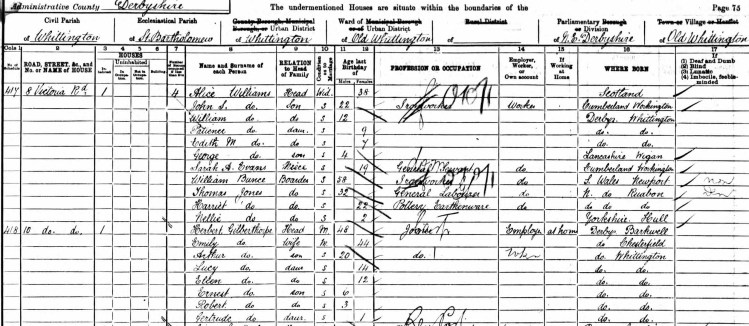 Administrative County Derbyshire The undermentioned Houses are situate within the boundaries of the Page 75
Civil Parish Ecclesiastical Parish County Borough, Municipal Borough, or Urban District Ward of Municipal Borough or of Urban District Rural District Parliamentary Borough or Division Town or Village or Hamlet
of Whittington of St Bartholomew of Whittington of Old Whittington of of N.E. Derbyshire of Old Whittington
Cols 1 2 3 4 5 6 7 8 9 10 11 12 13 14 15 16 17
ROAD, STREET, &c., and No. or NAME of HOUSE HOUSES Inhabited Uninhabited Building Name and Surname of each Person RELATION to Head of Family Age last Birthday of Males Females PROFESSION OR OCCUPATION Employer, Worker, or Own account If Working at Home WHERE BORN (1) Deaf and Dumb (2) Blind (3) Lunatic (4) Imbecile, feeble-minded
417 8 Victoria Rd 1 4 Alice Williams Head Wid 38 Scotland
John S. do. Son S 22 Ironworker Worker Cumberland Workington
William do do S 12 Derby. Whittington
Patience do daur. S 9 do. do.
Edith M do do S 7 do. do.
George do son S 4 Lancashire Wigan
Sarah A. Evans Niece S 19 General Servant do Cumberland Workington
William Bunce Boarder S 58 Ironworker do S. Wales Newport
Thomas Jones do S 32 General Labourer do N. do Ruabon
Harriet do do S 22 Pottery Earthenware do do. do.
Nellie do do S 2 Yorkshire Hull
418 10 do. do. 1 Herbert Gilberthorpe Head M 48 Joiner Employer at home Derby Barkwell
Emily do Wife M 44 do Chesterfield
Arthur do son S 20 do. do Whittington
Lucy do daur S 14 do. do.
Ellen do do S 12 do. do.
Ernest do son S 6 do. do.
Robert do do S 3 do. do.
Gertrude do daur. S 1 do. do.